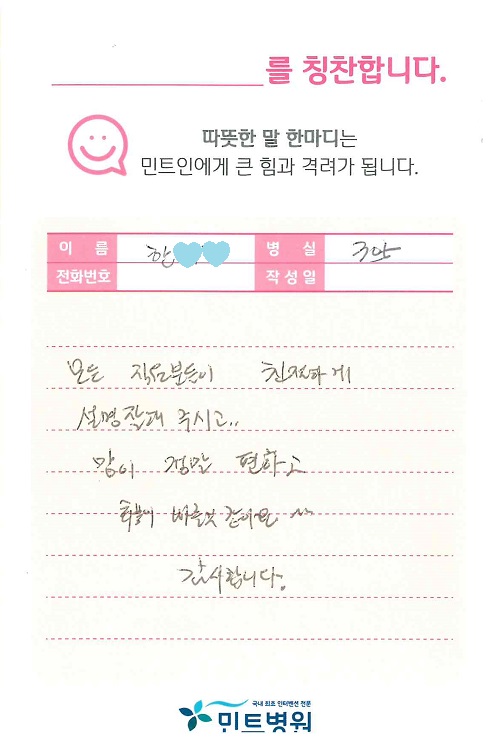 를 칭찬합니다.
따뜻한 말 한마디는
민트인에게 큰 힘과 격려가 됩니다.
이 름 한 병 실
전화번호 작성일
모든 직원분들이 친절하게
설명잘해 주시고..
맘이 정말 편하고
같아요 ^^
감사합니다.
국내 최초 인터벤션 전문
민트병원